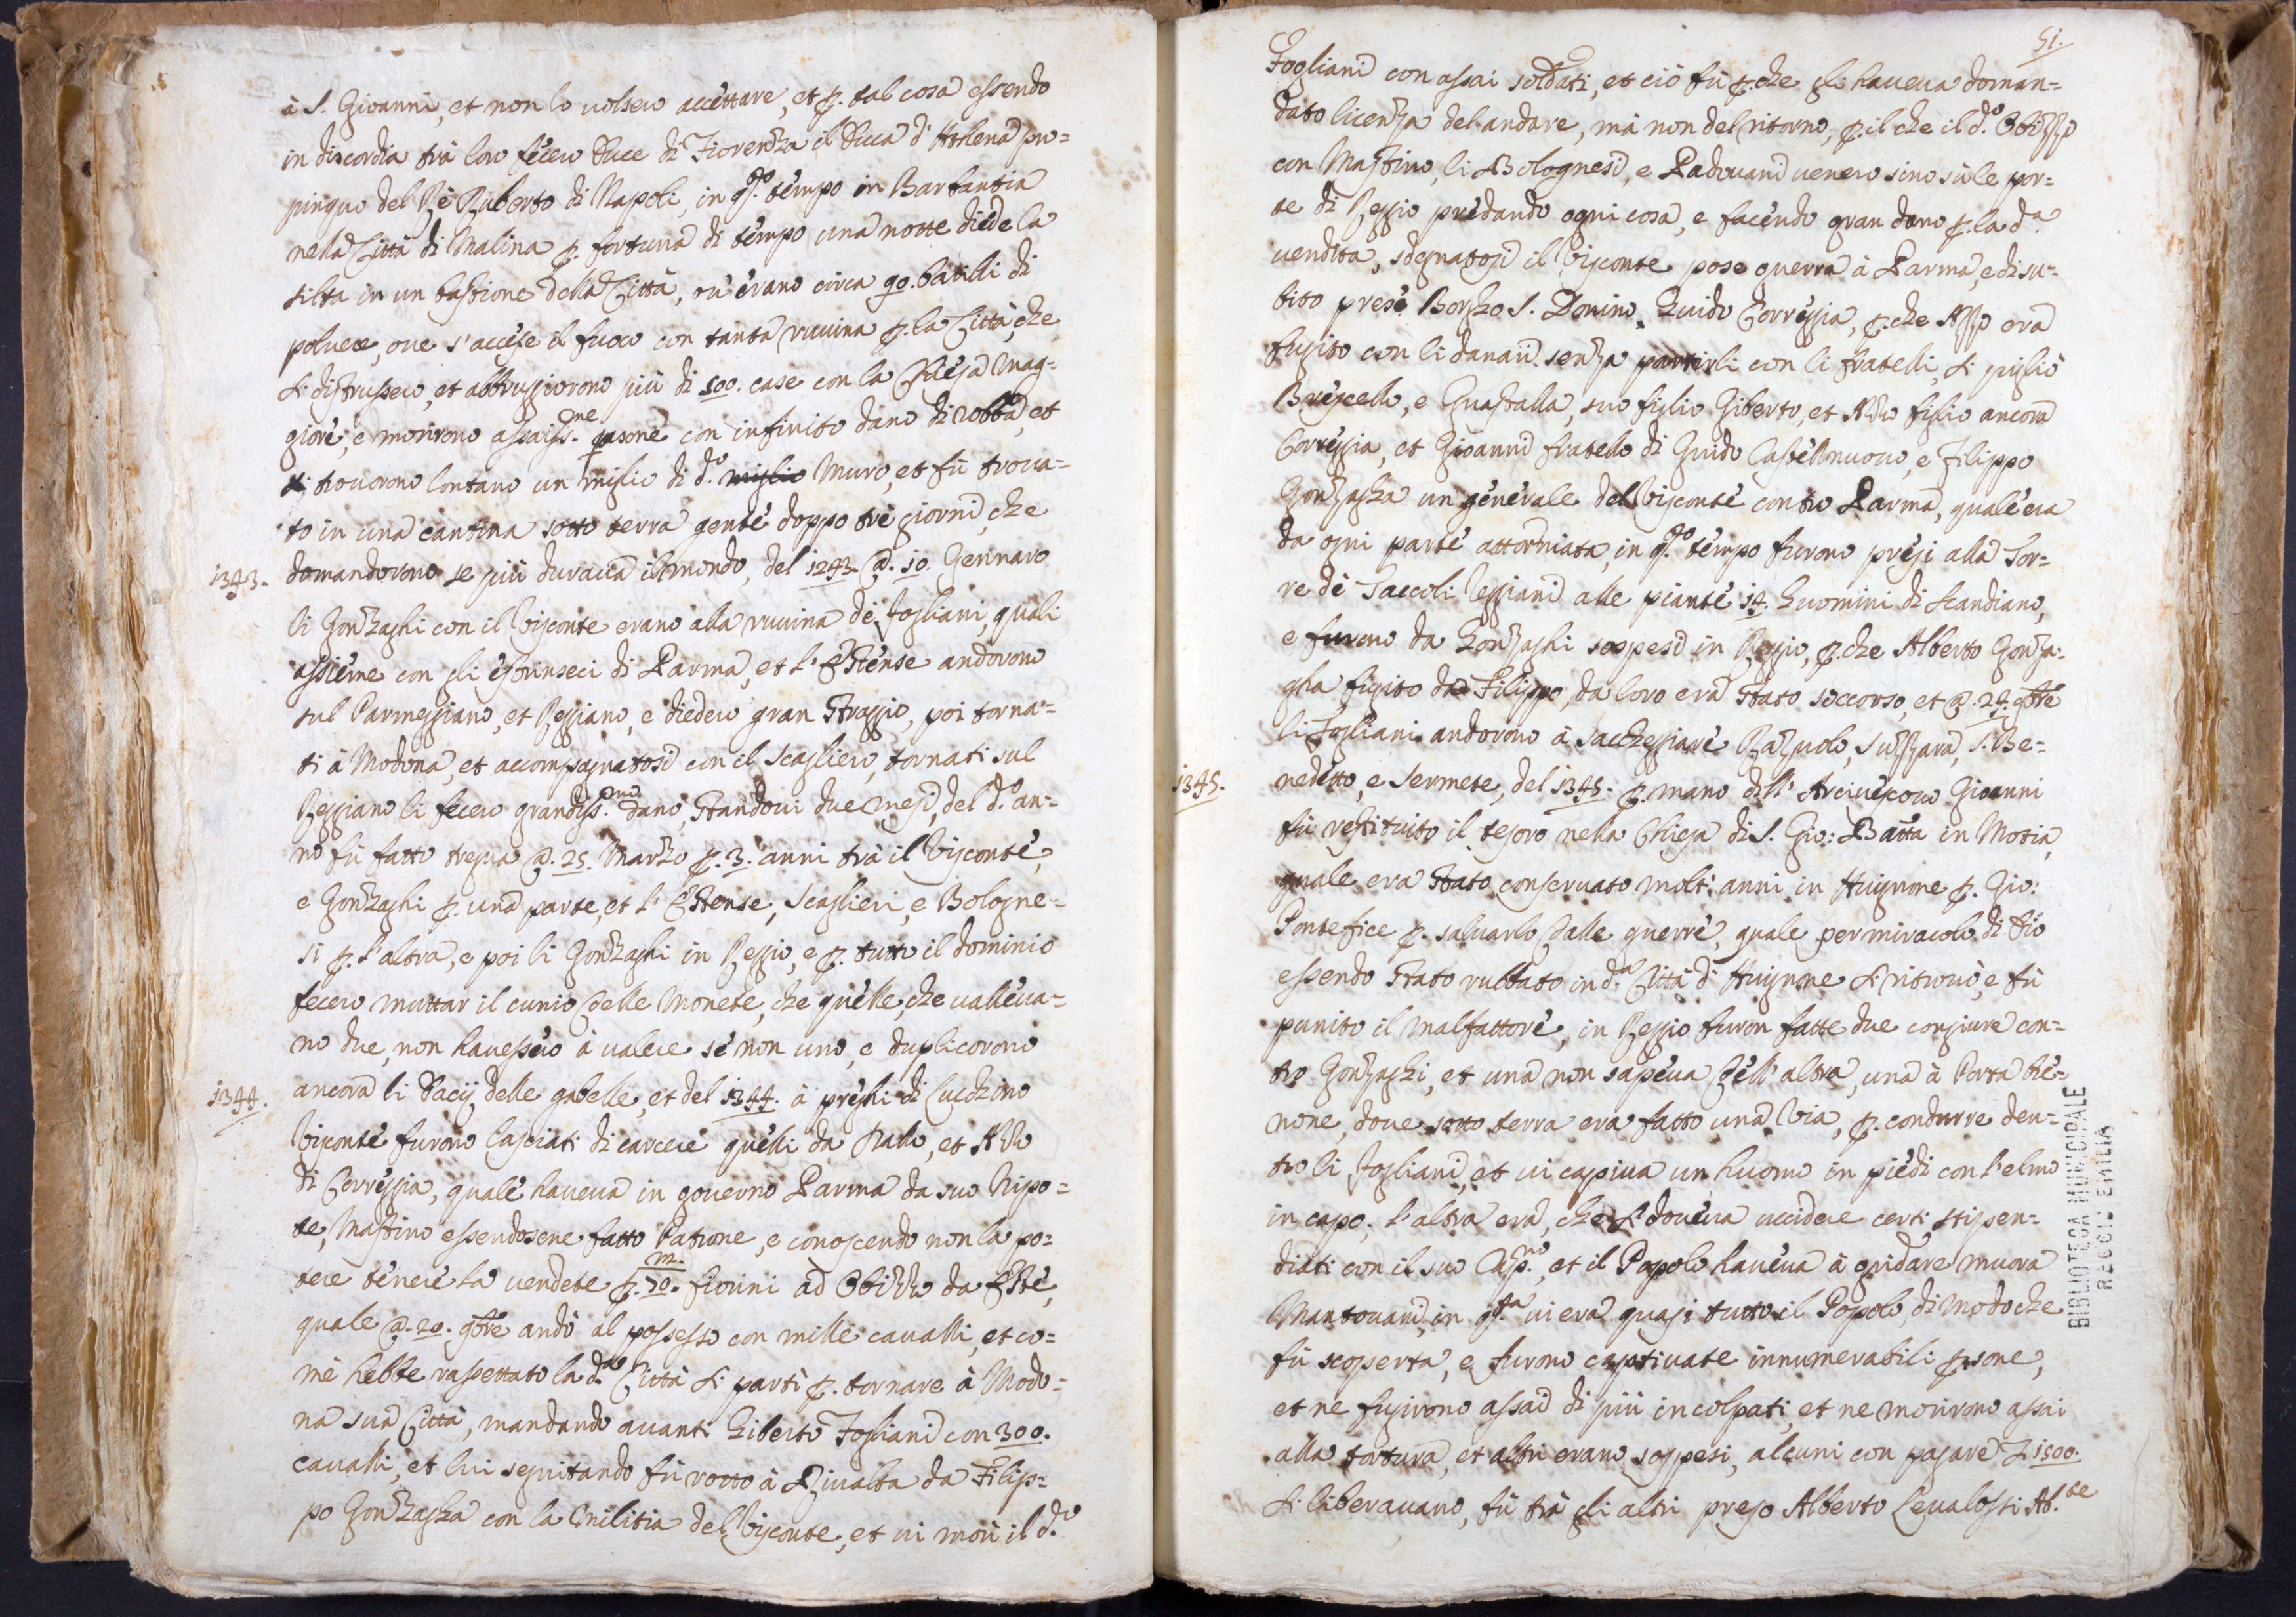 à S. Gioanni, et non lo uolsero accettare, et p. tal cosa essendo
in discordia trà loro fécero Duce di Fiorenza il Ducca d'Athena pro=
pinquo del Rè Ruberto di Napoli, in q.to tempo in Barbantia
nella Città di Malina p. fortuna di tempo una notte diede la
silta in un bastione della Città, ou'érano circa 90. barilli di
poluere, oue s'accese il fuoco con tanta ruuina p. la Città, che
si distrussero, et abbruggiorono più di 500. case con la Chiesa mag=
giore, e morirono assaiss.me psone con infinito dano di robba, et
si trouorono lontano un miglio di d.o miglio Muro, et fù troua=
to in una cantina sotto terra gente doppo trè giorni, che
1343.
domandorono se più duraua il mondo, del 1243 @. 10. Gennaro
li Gonzaghi con il Visconte erano alla ruuina dè Fogliani, quali
assieme con gli estrinseci di Parma, et l'Estense andorono
sul Parmeggiano, et Reggiano, e diedero gran straggio, poi torna=
ti à Modona, et accompagnatosi con il Scagliero, tornati sul
Reggiano li fecero grandiss.mo dano, standoui due mesi, del d.o an=
no fù fatto tregua @. 25. Marzo p. 3. anni trà il Visconte,
e Gonzaghi p. una parte, et l'Estense, Scaglieri, e Bologne=
si p. l'altra, e poi li Gonzaghi in Reggio, e p. tutto il dominio
fecero muttar il cunio delle Monete, che quelle, che valléua=
no due, non hauessero à ualere se non uno, e duplicorono
1344.
ancora li Dacij delle gabelle, et del 1344. à preghi di Luchino
Visconte furono lasciati di carcere quelli da Palù, et Azzo
di Correggia, quale haueua in gouerno Parma da suo Nipo=
te, Mastino essendosene fatto Patrone, e conoscendo non la po=
tere tenere la vendete p. 70.m fiorini ad Obizzo da Este,
quale @. 20. 9bre andò al possesso con mille caualli, et co=
me hebbe raspettato la d.a Città si partì p. tornare à Modo=
na sua Città, mandando auanti Giberto Fogliani con 300.
caualli, et lui seguitando fù rotto à Riualta da Filip=
po Gonzagha con la Militia del Visconte, et ui morì il d.o
51.
Fogliani con assai soldati, et ciò fù p.che gli haueua doman=
dato licenza del andare, mà non del ritorno, p. il che il d.o Obizzo
con Mastino, li Bolognesi, e Padouani uenero sino sù le por=
te di Reggio predando ogni cosa, e facendo gran dano p. la d.a
uendita, sdegnatosi il Visconte pose guerra à Parma, e di su=
bito prese Borgho S. Donino, Guido Correggia, p.che Azzo era
fugito con li danari senza partirli con li fratelli, si pigliò
Brescello, e Guastalla, suo figlio Giberto, et Azzo figlio ancora
Correggia, et Gioanni fratello di Guido Castellnuouo, e Filippo
Gonzagha un generale del Visconte contro Parma, quale era
da ogni parte attorniata, in q.to tempo furono presi alla Tor=
re dè Taccoli Reggiani alle piante 14. huomini di Scandiano,
e furono da Gonzaghi sospesi in Reggio, p.che Alberto Gonza=
gha fugito da Filippo, da loro era stato soccorso, et @. 24. 9bre
li Fogliani andorono à sacchegiare Razuolo, Suzzara, S. Be=
1345.
nedetto, e Sermete, del 1345. p. mano dell'Arciuescouo Gioanni
fù restituito il tesoro nella Chiesa di S. Gio: Batta in Motia,
quale era stato conseruato molti anni in Auignone p. Gio:
Pontefice p. saluarlo dalle guerre, quale per miracolo di Dio
essendo stato rubbato in d.a Città d'Auignone si ritrouò, e fù
punito il malfattore, in Reggio furon fatte due congiure con=
tro Gonzaghi, et una non sapeua dell'altra, una à Porta bré=
none, doue sotto terra era fatto una Via, p. condurre den=
tro li Fogliani, et ui capiua un huomo in piedi con l'elmo
in capo, l'altra era, che si doueua uccidere certi stipen=
diati con il suo Cap.no, et il Popolo haueua à gridare muora
Mantouani, in q.ta ui era quasi tutto il Popolo, di modo che
fù scoperta, e furono captiuate innumerabili psone,
et ne fugirono assai di più incolpati, et ne morirono assai
alla tortura, et altri erano sospesi, alcuni con pagare L 1500.
si liberauano, fù trà gli altri preso Alberto Leualossi Ab.te
BIBLIOTECA MUNICIPALE
REGGIO EMILIA